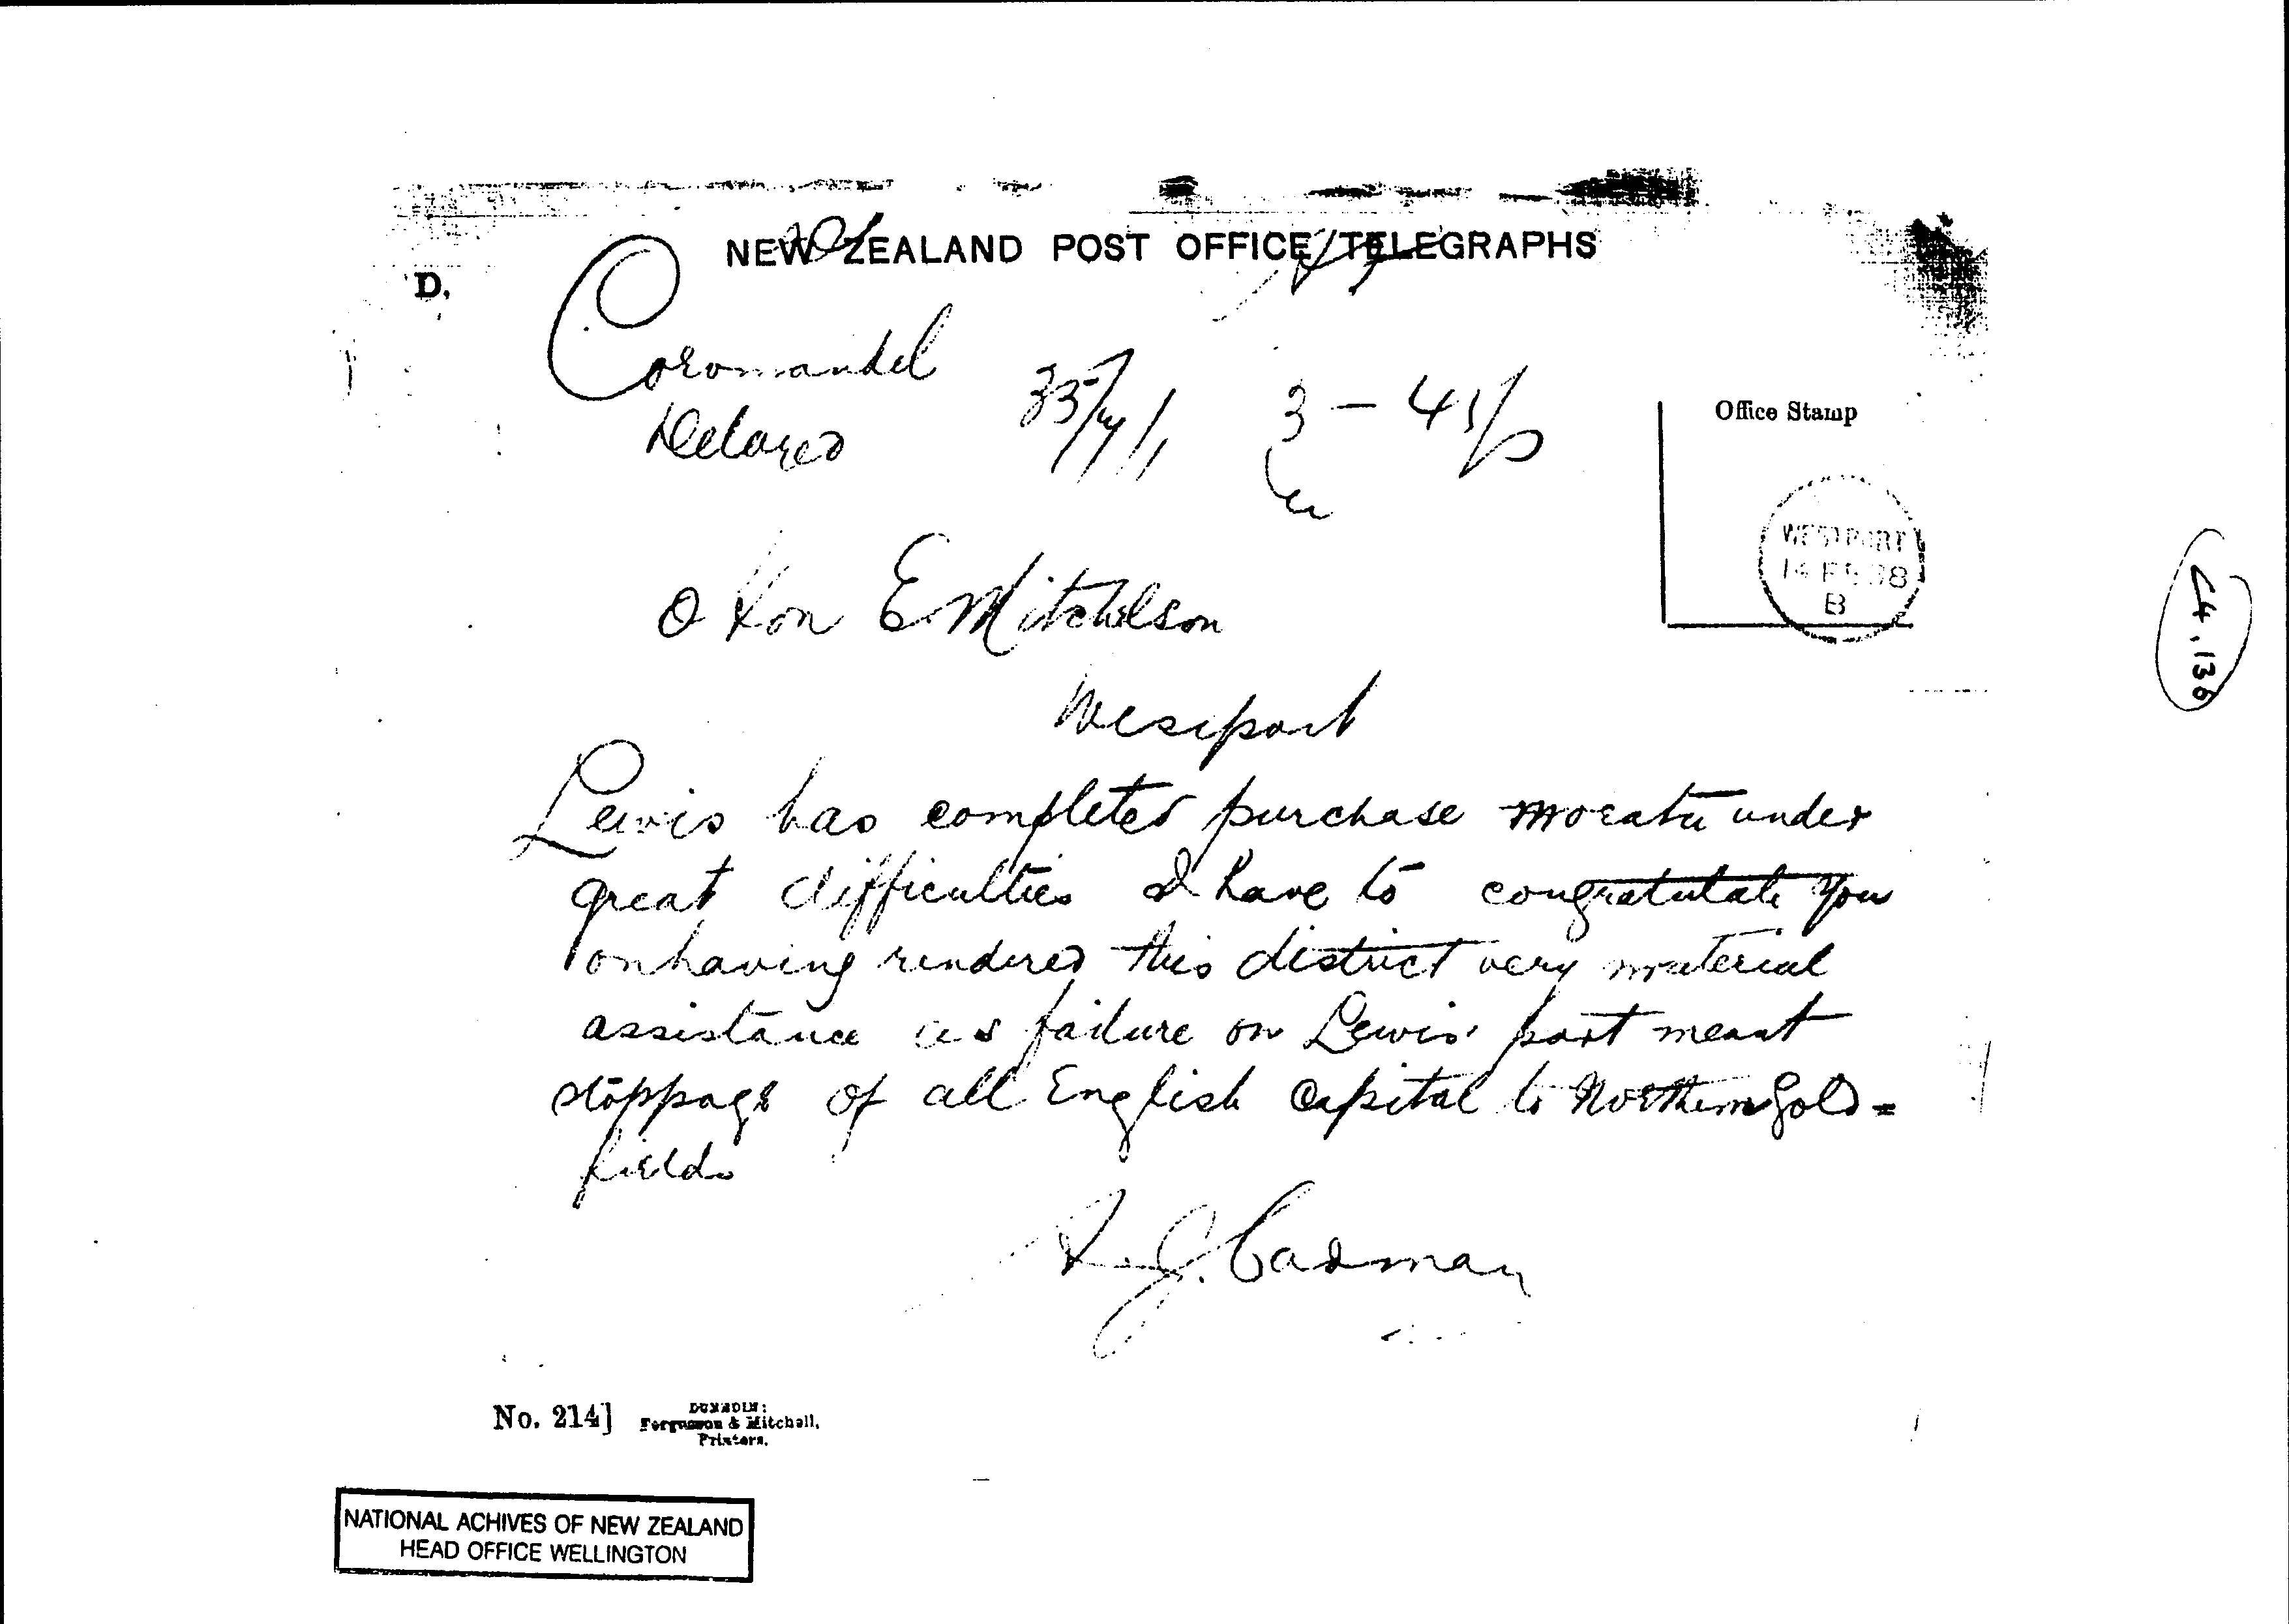 NEW ZEALAND POST OFFICE TELEGRAPHS
D.
Coromandel
Delayed
3 - 45 p
Office Stamp
WESTPORT
14 FE 88
B
Hon E Mitchelson
Westport
Lewis has completed purchase Moeatu under
great difficulties I have to congratulate you
on having rendered this district very material
assistance as failure on Lewis' part meant
stoppage of all English Capital to Northern Gold=
fields
A. J. Cadman
No. 214]
DUNEDIN:
Fergusson & Mitchell,
Printers.
NATIONAL ACHIVES OF NEW ZEALAND
HEAD OFFICE WELLINGTON